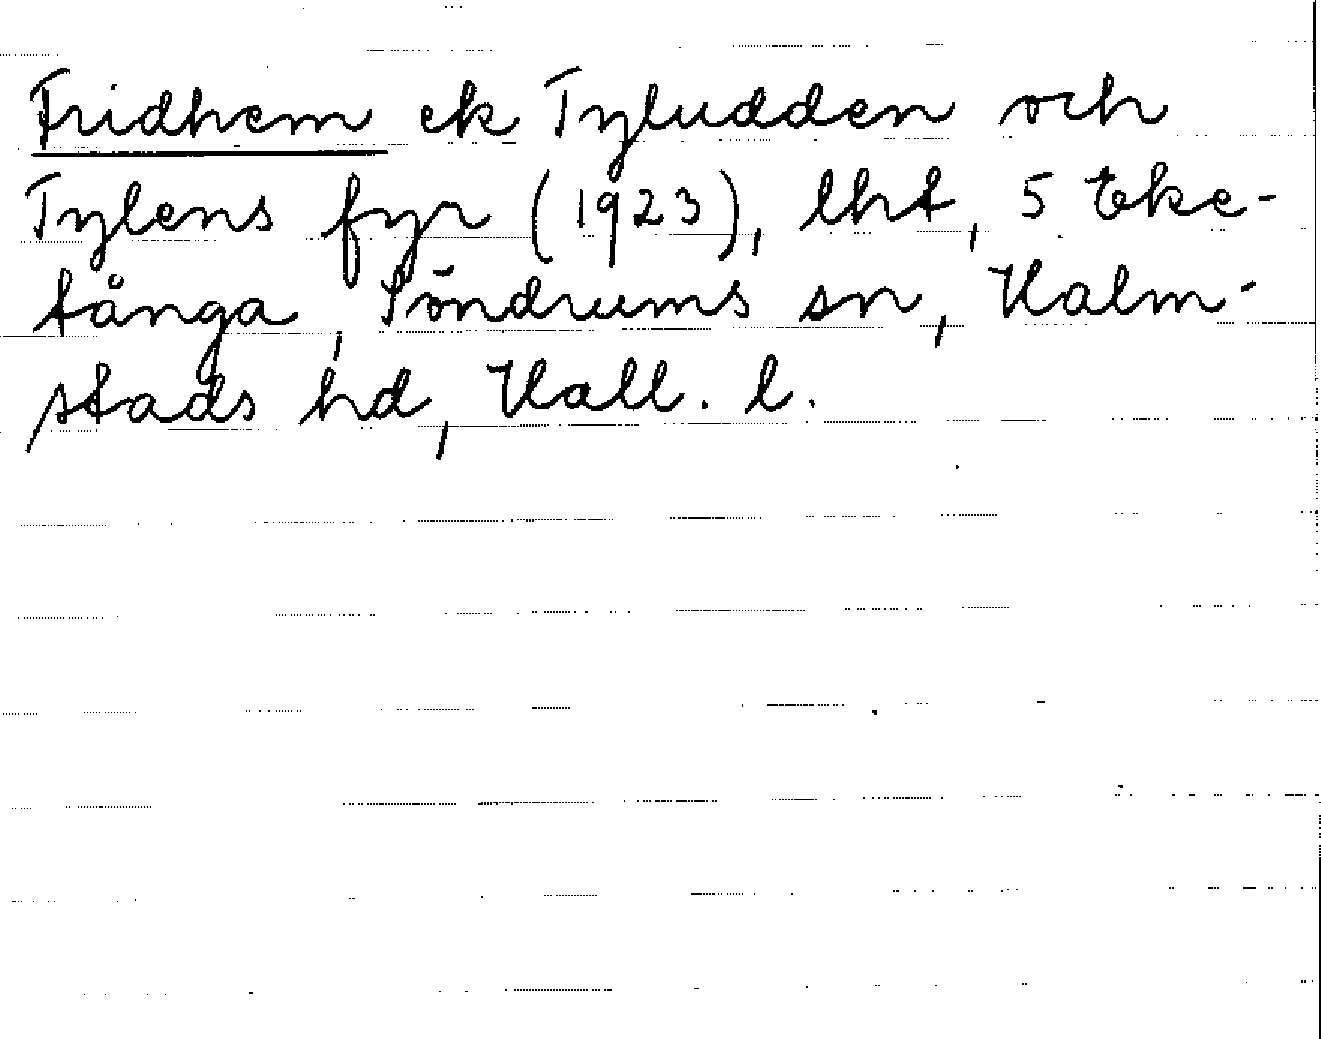 Fridhem ek Tyludden och
Tylens fyr (1923), lht, 5 Eke-
tånga, Söndrums sn, Halm-
stads hd, Hall. l.